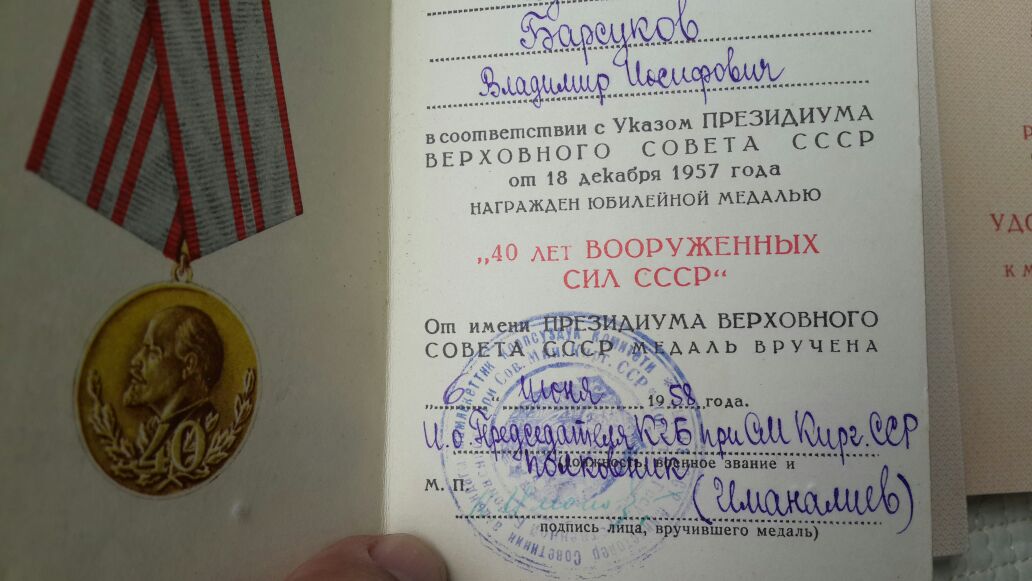 Барсуков
Владимир Иосифович
в соответствии с Указом ПРЕЗИДИУМА
ВЕРХОВНОГО СОВЕТА СССР
от 18 декабря 1957 года
НАГРАЖДЕН ЮБИЛЕЙНОЙ МЕДАЛЬЮ
„40 ЛЕТ ВООРУЖЕННЫХ
СИЛ СССР“
От имени ПРЕЗИДИУМА ВЕРХОВНОГО
СОВЕТА СССР МЕДАЛЬ ВРУЧЕНА
„6“ июня 1958 года.
И.о. Председателя КГБ при СМ Кирг. ССР
полковник
(должность, военное звание и
М. П. (Иманалиев)
подпись лица, вручившего медаль)
40
УДО
К М